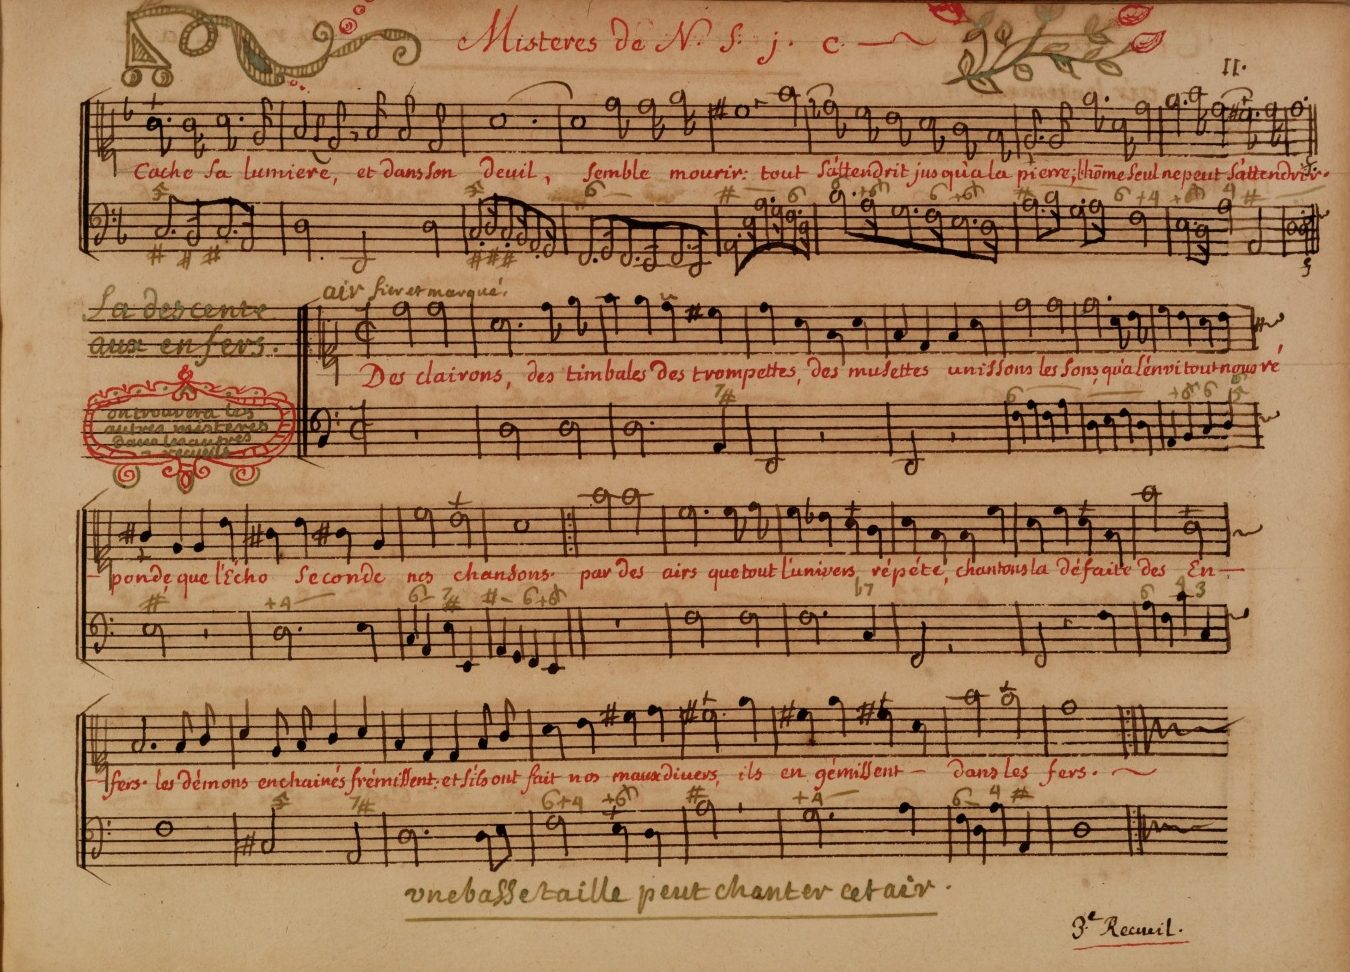 Misteres de N. S. j. c.
11.
Cache sa lumiere, et dans son deuil, semble mourir: tout s'attendrit jusqu'à la pierre; l'hōme seul ne peut s'attendrir.
La descente
aux enfers.
air fier et marqué.
Des clairons, des timbales des trompettes, des musettes unissons les sons, qu'a l'envi tout nous ré
on trouvera les
autres misteres
dans
recueils
ponde, que l'Echo seconde nos chansons. par des airs que tout l'univers répéte, chantons la défaite des En-
fers. les démons enchainés frémissent; et s'ils ont fait nos maux divers, ils en gémissent dans les fers.
vne basse taille peut chanter cet air.
3.e Recueil.